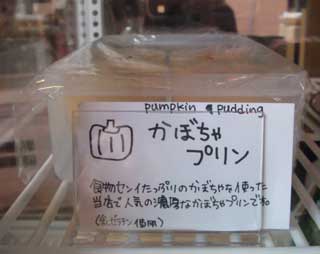 pumpkin pudding
かぼちゃ
プリン
食物センイたっぷりのかぼちゃを使った
当店で人気の濃厚なかぼちゃプリンです
ゼラチン使用)